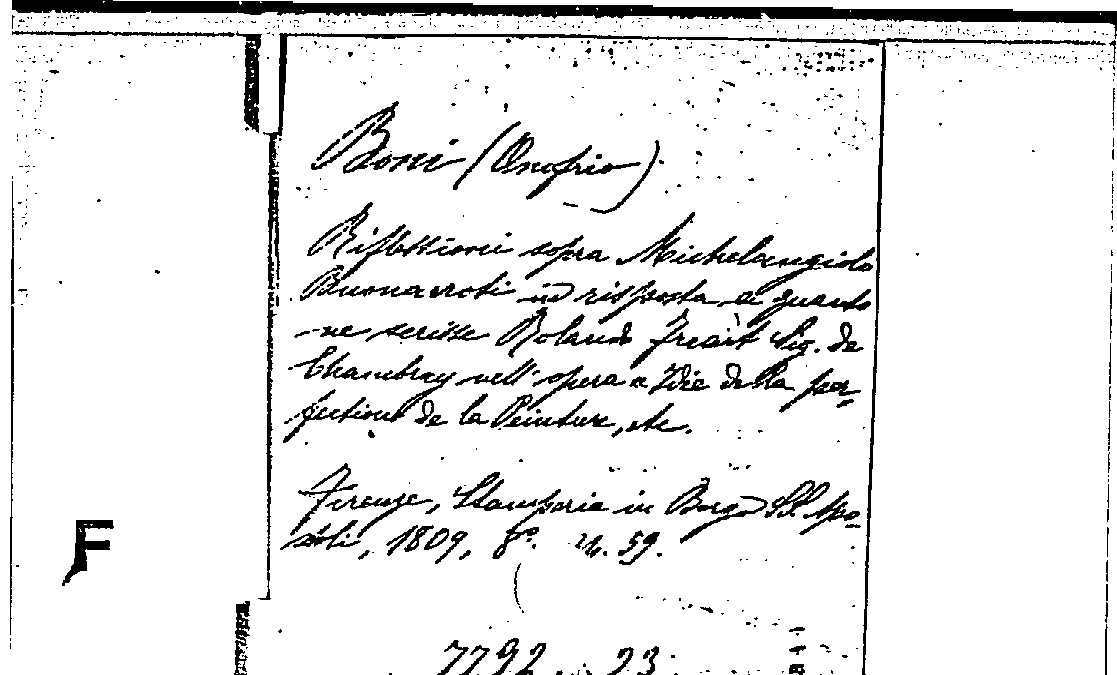 Boni (Onofrio)
Riflessioni sopra Michelangiolo
Buonarroti in risposta a quanto
ne scrisse Roland Freart Sig. de
Chambray nell' opera "Idée de la per-
fection de la Peinture, etc.
Firenze, Stamperia in Borgo SS. Apo-
stoli, 1809, 8º.
F
7792 . 23